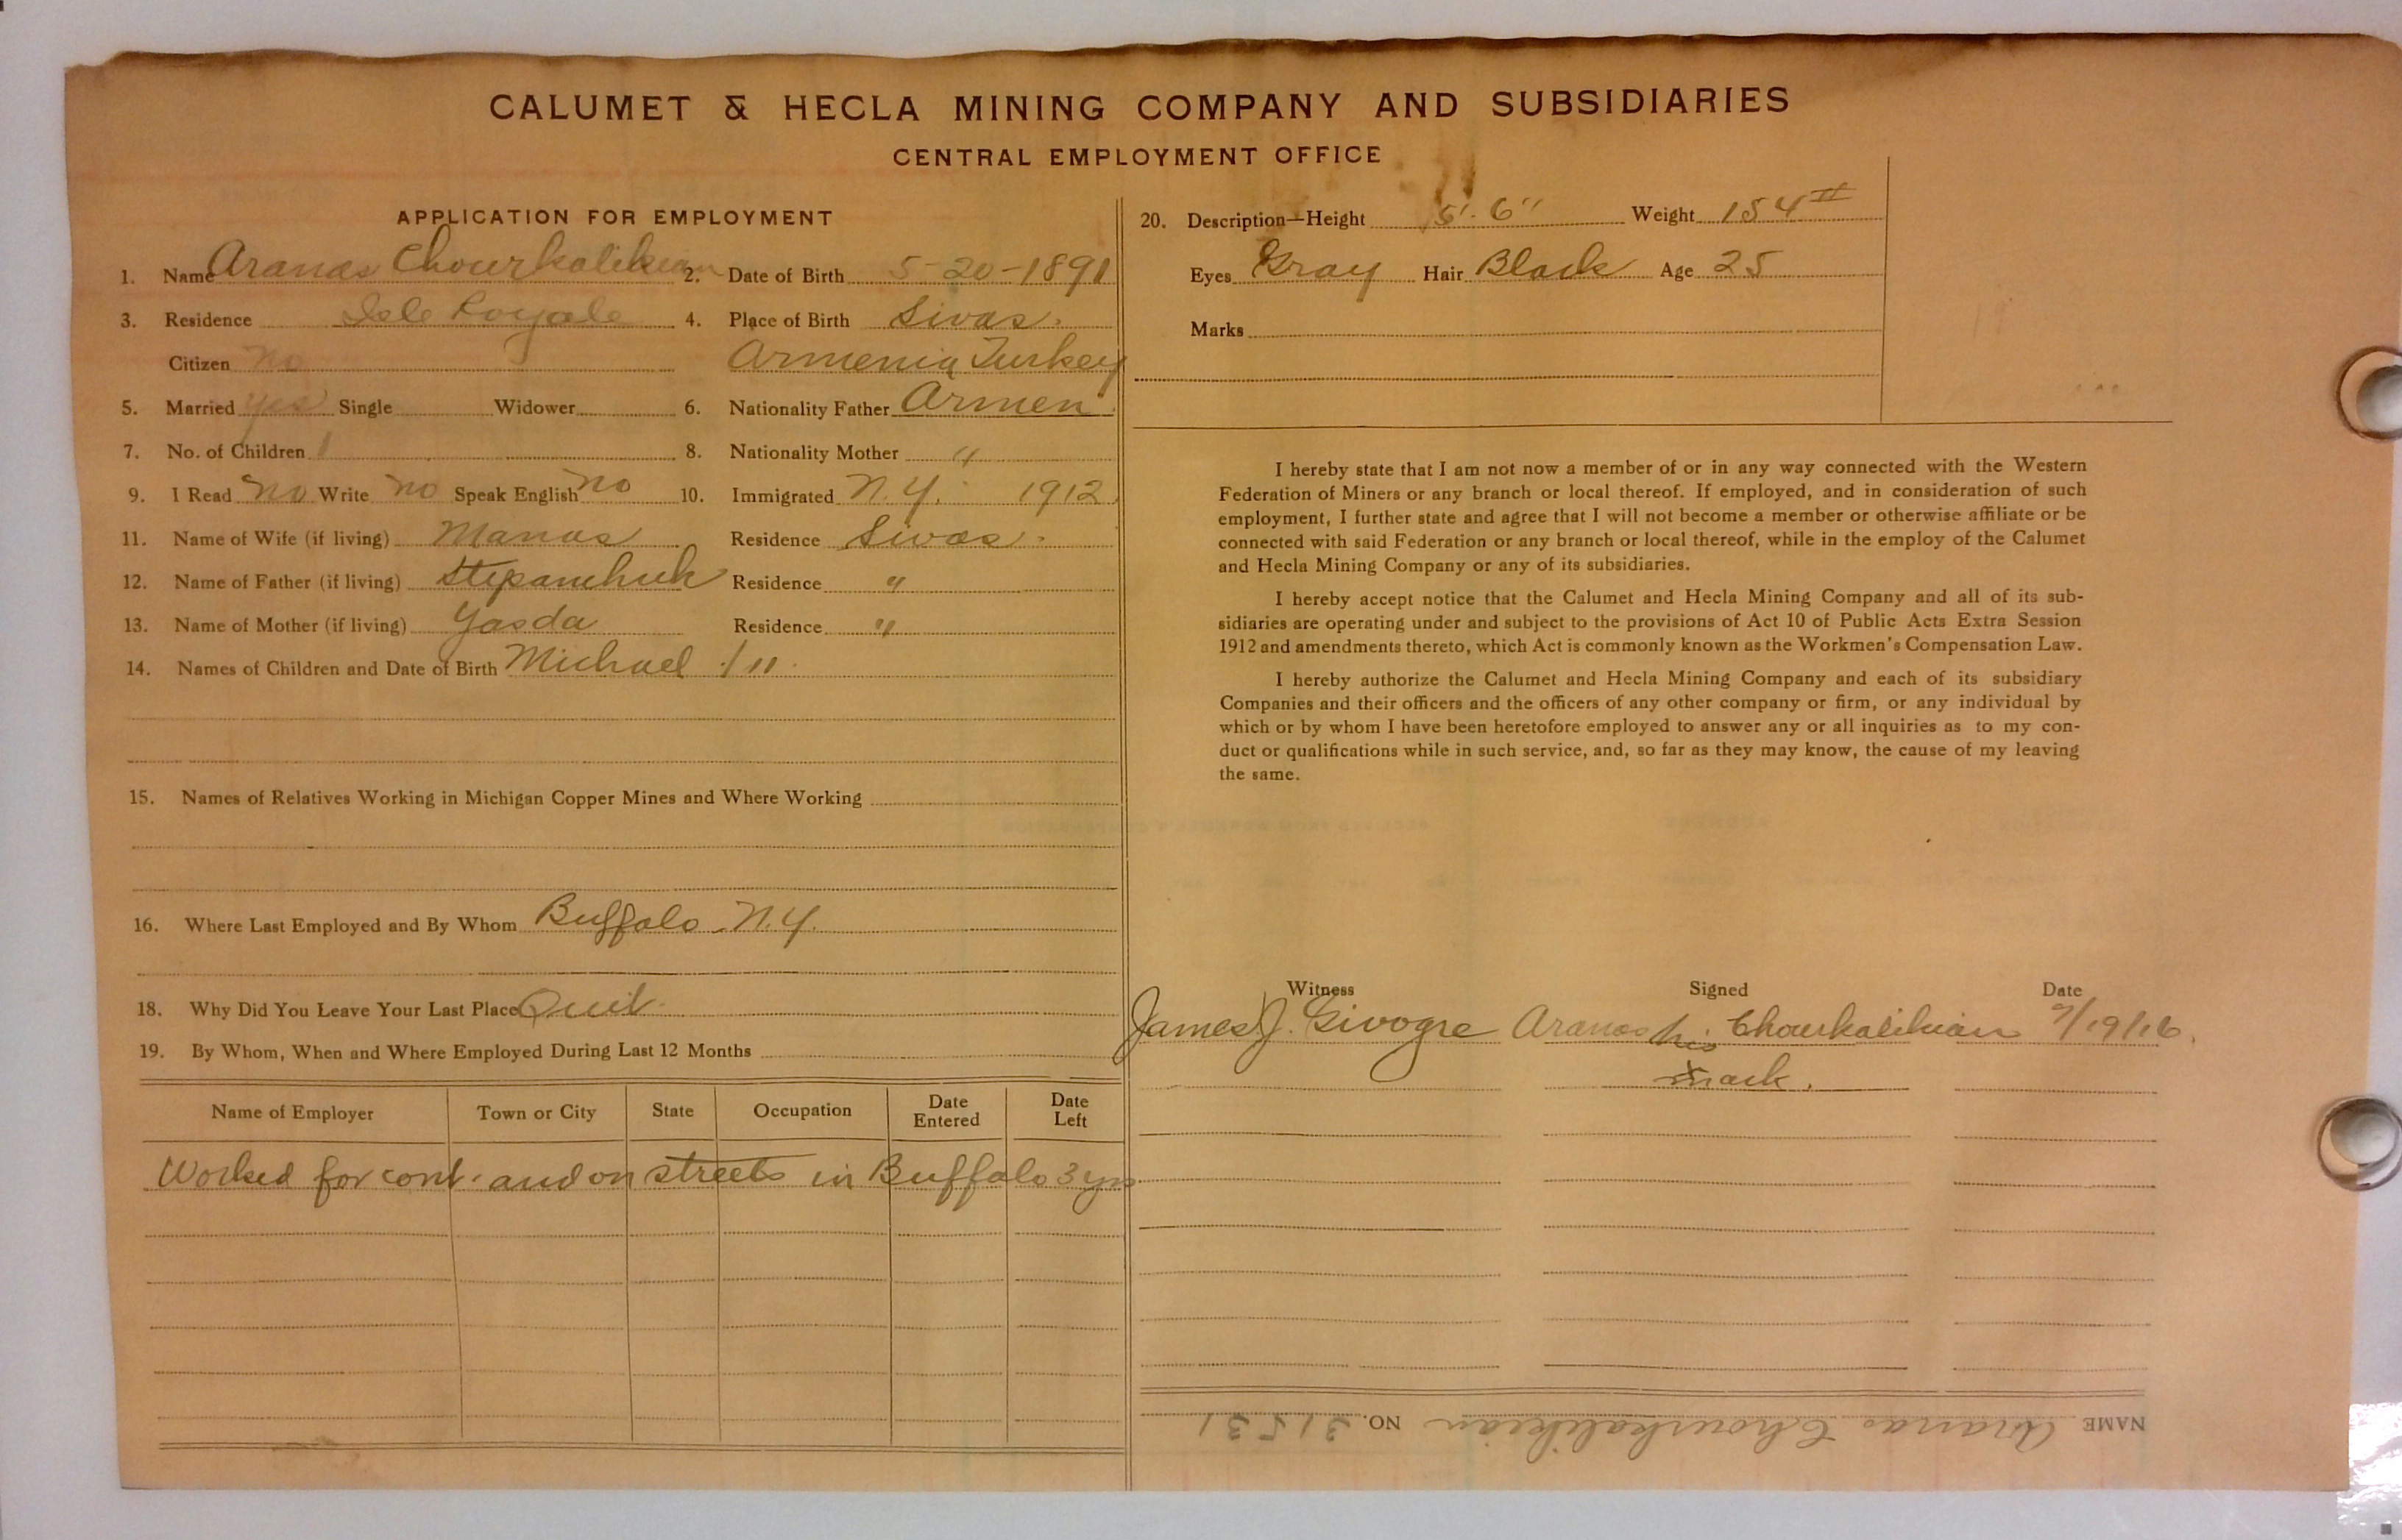 CALUMET & HECLA MINING COMPANY AND SUBSIDIARIES
CENTRAL EMPLOYMENT OFFICE
APPLICATION FOR EMPLOYMENT
1. Name Aranas Chourkalikian 2. Date of Birth 5-20-1891
3. Residence Isle Royale 4. Place of Birth Sivas.
Citizen no Armenia Turkey
5. Married yes Single Widower 6. Nationality Father Armen.
7. No. of Children 1 8. Nationality Mother "
9. I Read no Write no Speak English no 10. Immigrated N.Y. 1912.
11. Name of Wife (if living) Manas Residence Sivas.
12. Name of Father (if living) Stepanchuk Residence "
13. Name of Mother (if living) Yasda Residence "
14. Names of Children and Date of Birth Michael
15. Names of Relatives Working in Michigan Copper Mines and Where Working
16. Where Last Employed and By Whom Buffalo. N.Y.
18. Why Did You Leave Your Last Place Quit.
19. By Whom, When and Where Employed During Last 12 Months
Name of Employer Town or City State Occupation Date Entered Date Left
Worked for cont. and on streets in Buffalo 3 yrs
20. Description—Height 5'. 6" Weight 154#
Eyes Gray Hair Black Age 25
Marks
I hereby state that I am not now a member of or in any way connected with the Western
Federation of Miners or any branch or local thereof. If employed, and in consideration of such
employment, I further state and agree that I will not become a member or otherwise affiliate or be
connected with said Federation or any branch or local thereof, while in the employ of the Calumet
and Hecla Mining Company or any of its subsidiaries.
I hereby accept notice that the Calumet and Hecla Mining Company and all of its sub-
sidiaries are operating under and subject to the provisions of Act 10 of Public Acts Extra Session
1912 and amendments thereto, which Act is commonly known as the Workmen's Compensation Law.
I hereby authorize the Calumet and Hecla Mining Company and each of its subsidiary
Companies and their officers and the officers of any other company or firm, or any individual by
which or by whom I have been heretofore employed to answer any or all inquiries as to my con-
duct or qualifications while in such service, and, so far as they may know, the cause of my leaving
the same.
Witness Signed Date
James J. Givogre Aranas his Chourkalikian 7/19/16.
x mark.
NAME Aranas Chourkalikian NO. 31531